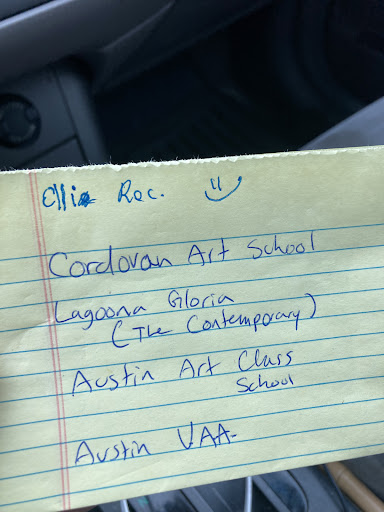 Ellie Rec.
Cordovan Art School
Lagoona Gloria
(The Contemporary)
Austin Art Class
School
Austin VAA.